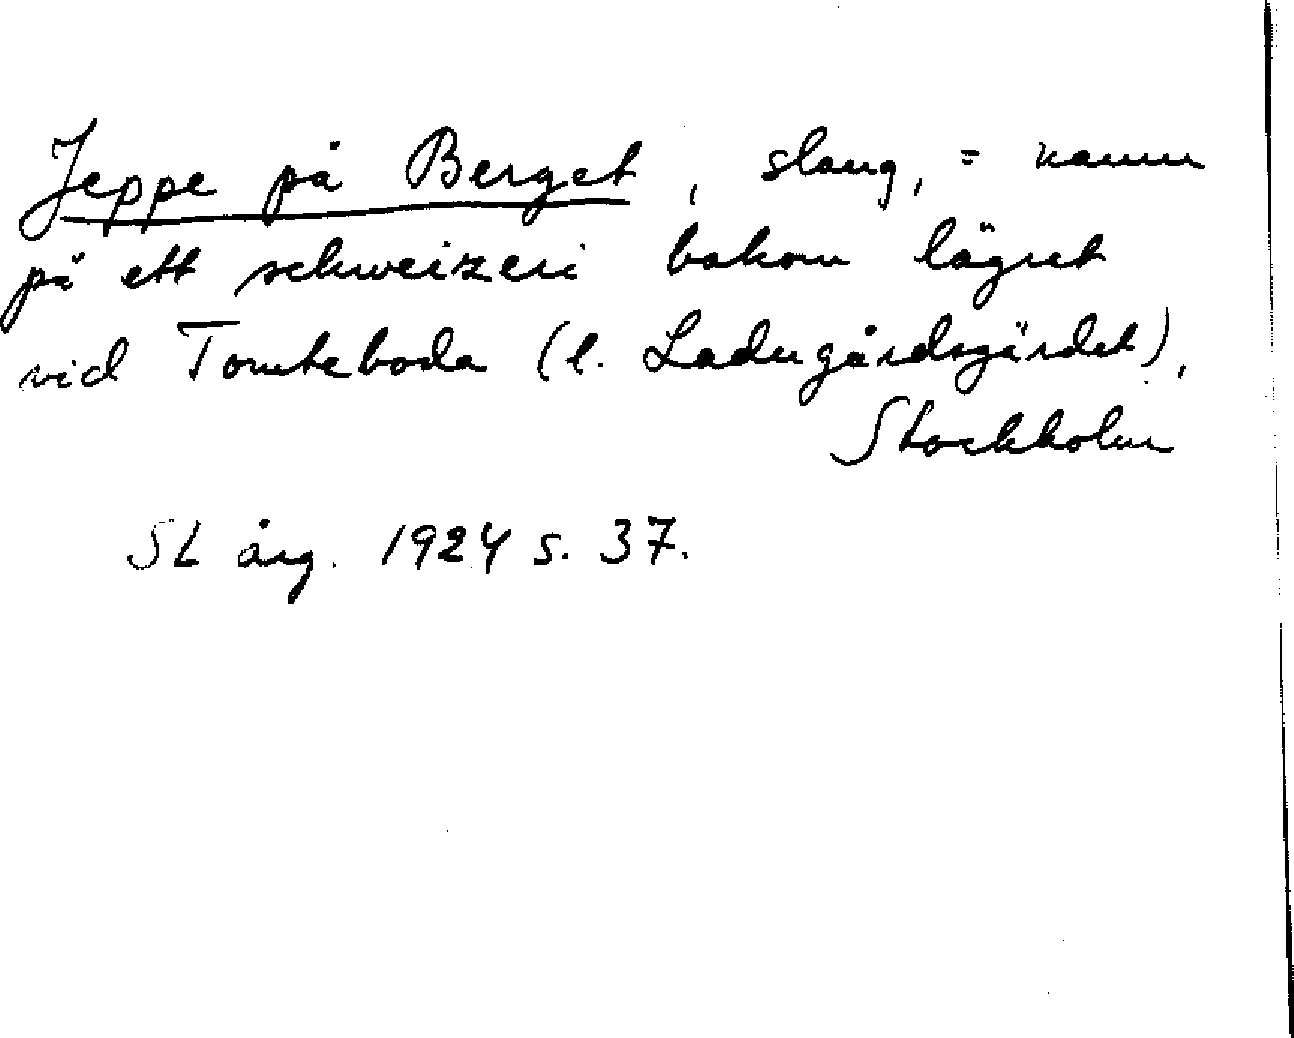 Jeppe på Berget, slang, = namn
på ett schweizeri bakom lägret
vid Tomteboda (l. Ladugårdsgärdet),
Stockholm
SL årg. 1924 s. 37.